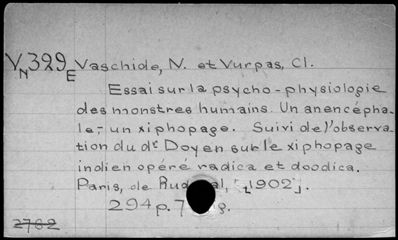 V_N 329_E Vaschide, N. et Vurpas, Cl.
Essai sur la psycho-physiologie
des monstres humains. Un anencépha-
le,- un xiphopage. Suivi de l'observa-
tion du dr Doyen sur le xiphopage
indien opéré radica et doodica.
Paris, de [1902].
294 p.
2762